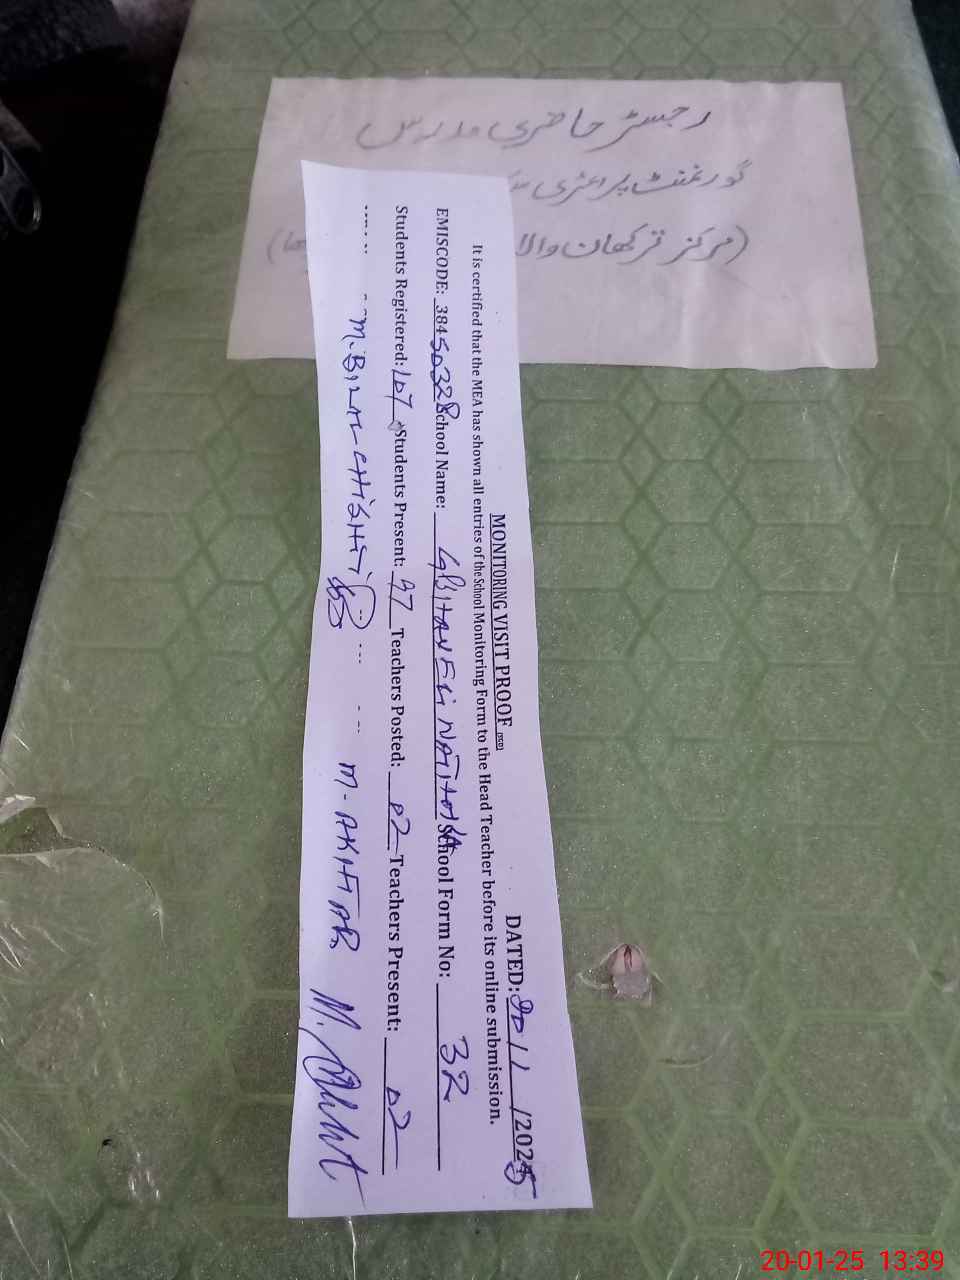 رجسٹر حاضری مدرس
گورنمنٹ پرائمری
(مرکز ترکھان والا
MONITORING VISIT PROOF DATED: 20/1/2025
It is certified that the MEA has shown all entries of the School Monitoring Form to the Head Teacher before its online submission.
EMISCODE: 38450328 School Name: School Form No: 32
Students Registered: 107 Students Present: 97 Teachers Posted: 02 Teachers Present: 02
M. BILAL CHISHTI M. AKHTAR
20-01-25 13:39